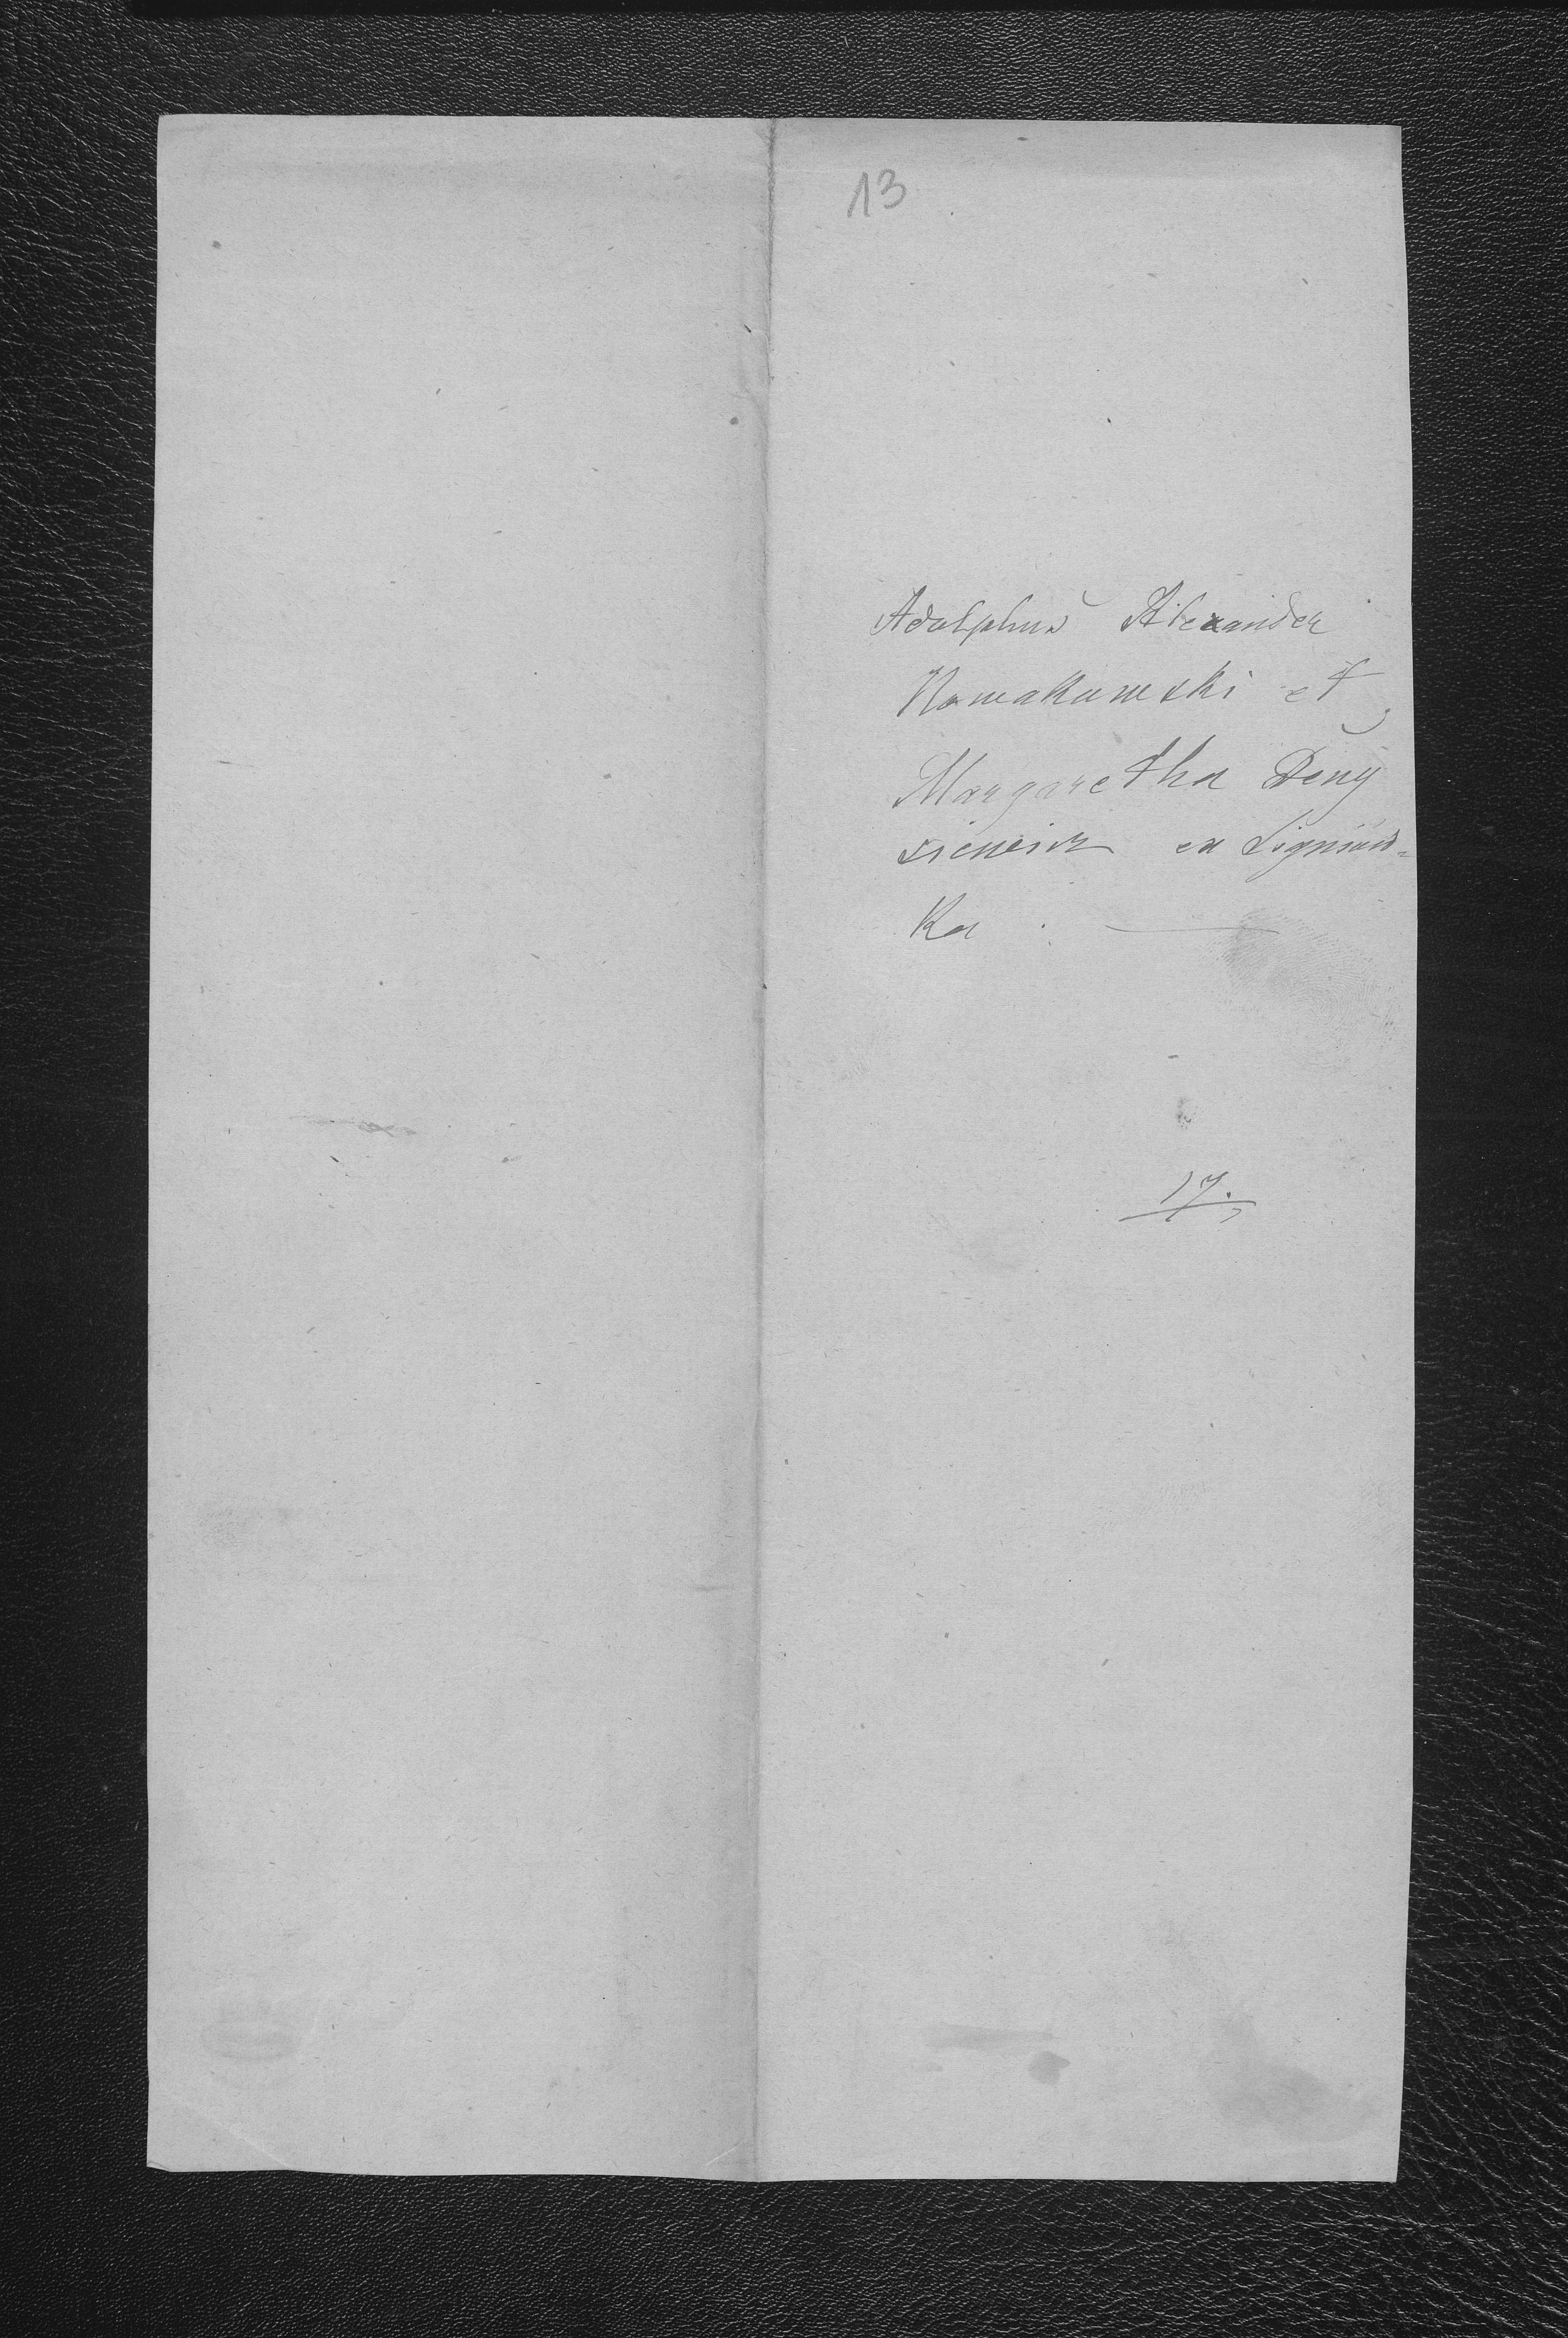 13
Adolphus Alexander
Nowakowski et
Margaretha Deny
siewicz ex Ligniów=
ka
17.